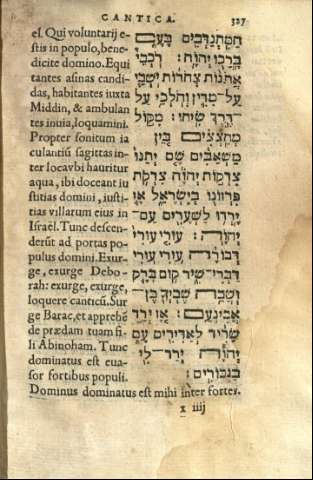 CANTICA. 327
el. Qui voluntarij e-
stis in populo, bene-
dicite domino. Equi
tantes asinas candi-
das, habitantes iuxta
Middin, & ambulan
tes in uia, loquamini.
Propter sonitum ia
culantiũ sagittas in-
ter loca vbi hauritur
aqua, ibi doceant iu
stitias domini, iusti-
tias villarum eius in
Israël. Tunc descen-
derũt ad portas po-
pulus domini. Exur-
ge, exurge Debo-
rah: exurge, exurge,
loquere canticũ. Sur
ge Barac, et apprehẽ
de prædam tuam fi-
li Abinoham. Tunc
dominatus est eua-
sor fortibus populi.
הַמִּתְנַדְּבִים בָּעָם
בָּרְכוּ יְהוָֹה: רֹכְבֵי
אֲתֹנוֹת צְחֹרוֹת יֹשְׁבֵי
עַל־מִדִּין וְהֹלְכֵי עַל
דֶּרֶךְ שִׂיחוּ: מִקּוֹל
מְחַצְצִים בֵּין
מַשְׁאַבִּים שָׁם יְתַנּוּ
צִדְקוֹת יְהוָֹה צִדְקֹת
פִּרְזוֹנוֹ בְּיִשְׂרָאֵל אָז
יָרְדוּ לַשְּׁעָרִים עַם־
יְהוָֹה: עוּרִי עוּרִי
דְּבוֹרָה עוּרִי עוּרִי
דַּבְּרִי־שִׁיר קוּם בָּרָק
וּשֲׁבֵה שֶׁבְיְךָ בֶּן־
אֲבִינֹעַם: אָז יְרַד
שָׂרִיד לְאַדִּירִים עָם
יְהוָֹה יְרַד־לִי
בַּגִּבּוֹרִים:
Dominus dominatus est mihi inter fortes.
x iiij